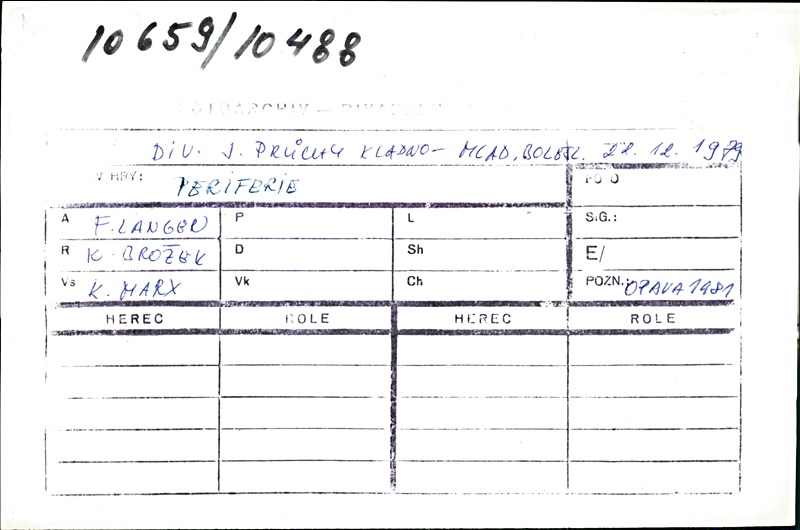 10 659/10 488
FOTOARCHIV — DIVADELN
DIV. J. PRŮCHY KLADNO – MLAD. BOLESL. 22. 12. 1979
V HRY: PERIFERIE FOTO
A F. LANGER P L SIG.:
R K. BROŽEK D Sh E/
Vs K. MARX Vk Ch POZN.: OPAVA 1981
HEREC ROLE HEREC ROLE